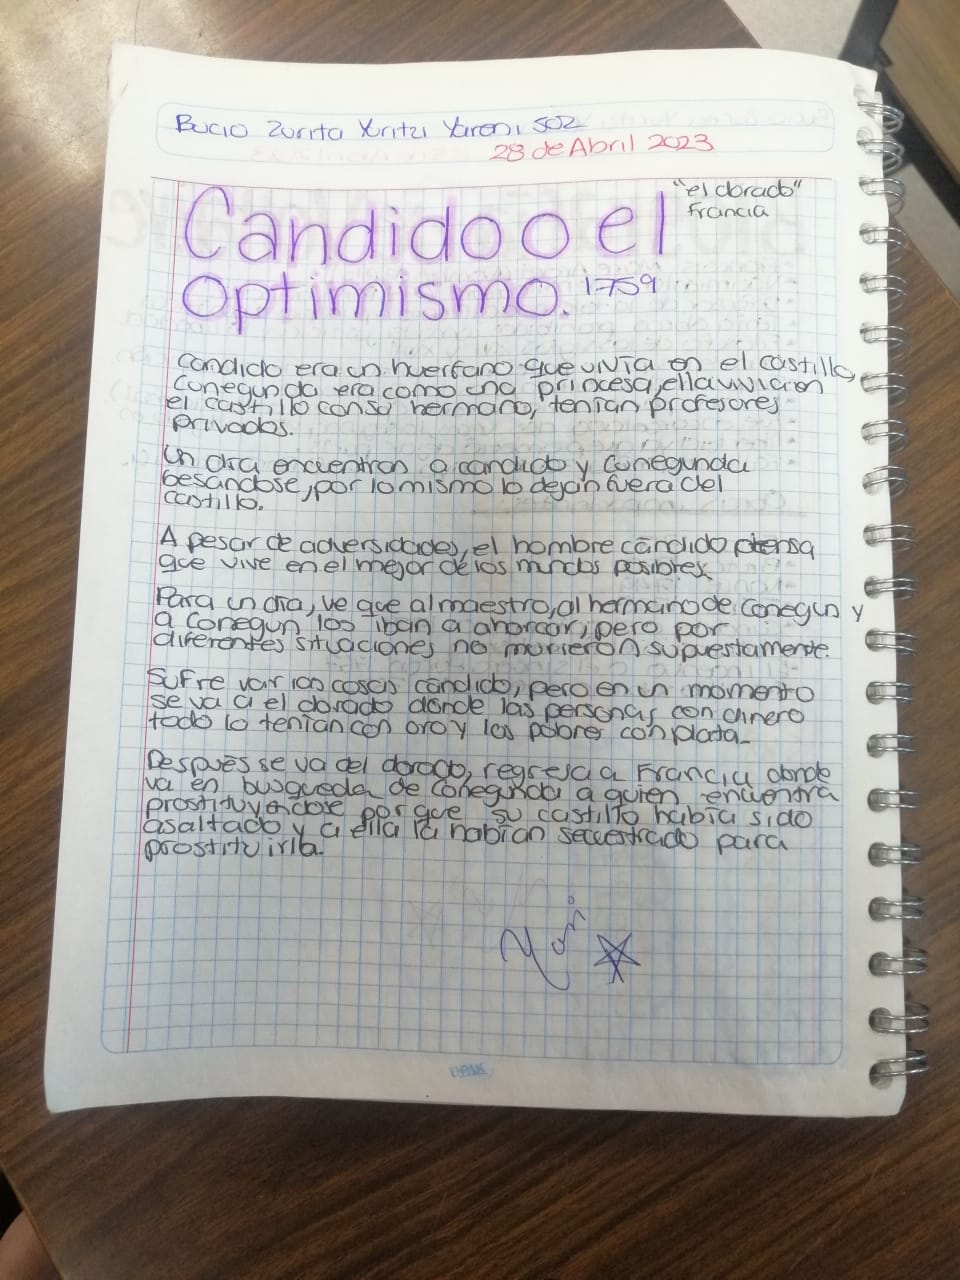 Bucio Zurita Yuritzi Yareni 502
28 de Abril 2023
"el dorado"
Francia
Candido o el
Optimismo. 1759
Candido era un huerfano que vivía en el castillo,
Conegunda era como una princesa, ella vivia en
el castillo con su hermano, tenían profesores
privados.
Un día encuentran a candido y Cunegunda
besándose, por lo mismo lo dejan fuera del
castillo.
A pesar de adversidades, el hombre cándido piensa
que vive en el mejor de los mundos posibles.
Para un día, ve que al maestro, al hermano de conegun y
a conegun los iban a ahorcar, pero por
diferentes situaciones no murieron supuestamente.
Sufre varias cosas cándido, pero en un momento
se va a el dorado donde las personas con dinero
todo lo tenían con oro y los pobres con plata.
Después se va del dorado, regresa a Francia donde
va en busqueda de Conegunda a quien encuentra
prostituyendose por que su castillo había sido
asaltado y a ella la habían secuestrado para
prostituirla.
Yari